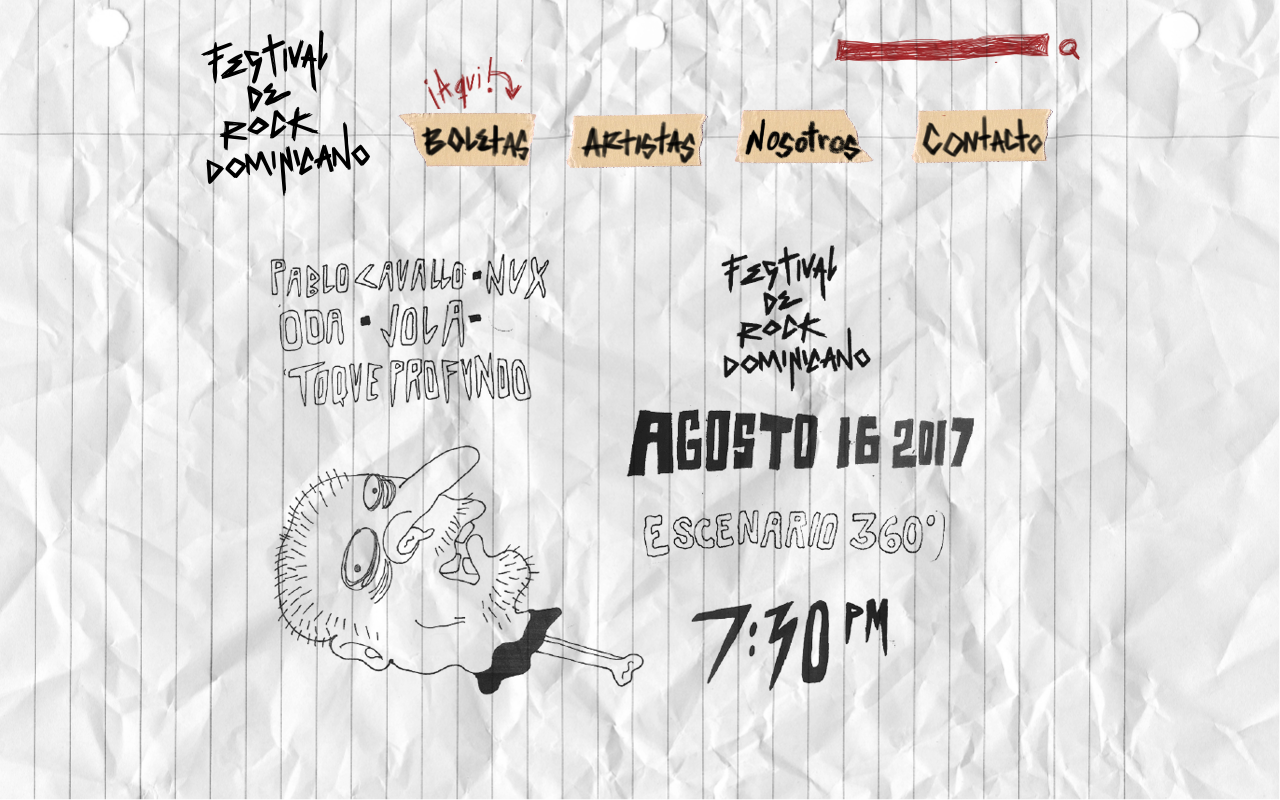 FESTIVAL
DE
ROCK
DOMINICANO
¡Aqui!
BOLETAS
ARTISTAS
Nosotros
CONTACTO
PABLO CAVALLO · NUX
ODA · JOLA ·
TOQUE PROFUNDO
FESTIVAL
DE
ROCK
DOMINICANO
AGOSTO 16 2017
ESCENARIO 360°)
7:30 PM